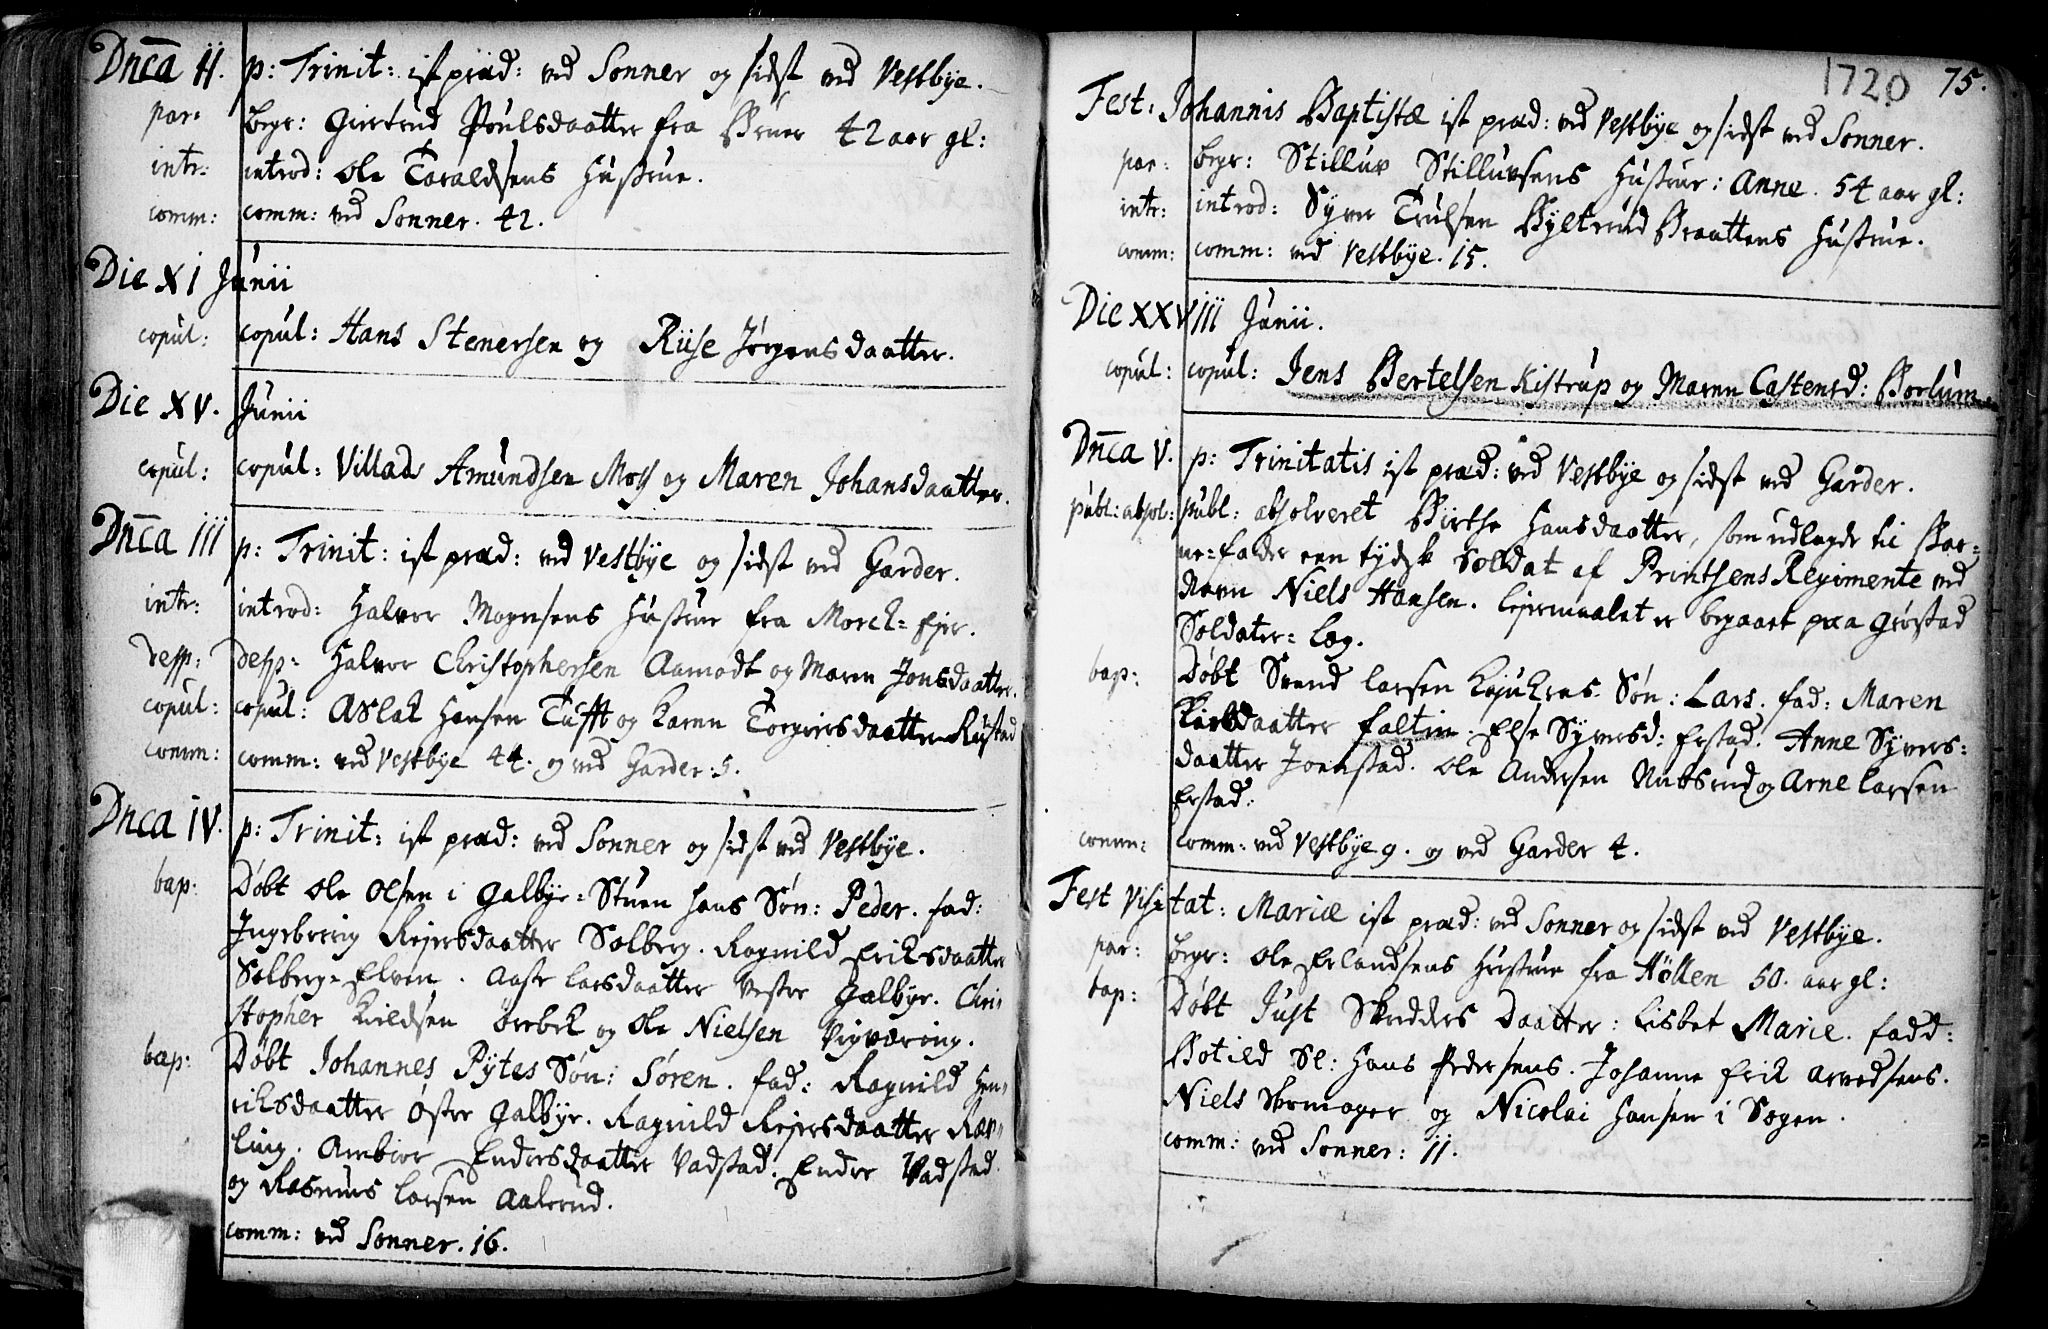 Dnca II. p: Trinit: ist præd: ved Sonner og sidst ved Vestbÿe.
par: begr: Giertrud Poulsdaatter fra Bruer 42 aar gl:
intr: introd: Ole Taraldsens Hustrue.
comm: comm: ved Sonner. 42.
Die XI Junii
copul: copul: Hans Stenersen og Riise Jørgensdaatter.
Die XV. Junii
copul: copul: Villads Amundsen Moss og Maren Johansdaatter.
Dnca III p: Trinit: ist præd: ved Vestbÿe og sidst ved Garder.
intr: introd: Halvor Mogensens Hustrue fra Morck=
desp: desp: Halvor Christophersen Aamodt og Maren Jonsdaatter.
copul: copul: Aslak Hansen Tufft og Karen Torgiersdaatter Rustad
comm: comm: ved Vestbÿe 44. og ved Garder: 5.
Dnca IV. p: Trinit: ist præd: ved Sonner og sidst ved Vestbÿe.
bap: Døbt Ole Olsen i Galbye=Stuen hans Søn: Peder. fad:
Ingebreig Rejersdaatter Solberg. Ragnild Eriksdaatter
Solberg=Elven. Aase Larsdaatter Vestre Galbye. Chri=
stopher Kieldsen Orebek og Ole Nielsen Vigværing.
bap: Døbt Johannes Pÿtes Søn: Søren. fad: Ragnild Hen=
riksdaatter Østre Galbye. Ragnild Rejersdaatter Ræv=
ling. Ambior Endersdaatter Vadstad. Ender Vadstad
og Rasmus Larsen Aakerud.
comm: ved Sonner. 16.
1720 75.
Fest: Johannis Baptistæ ist præd: ved Vestbÿe og sidst ved Sonner.
par: begr: Stilluv Stilluvsens Hustrue: Anne. 54 aar gl:
intr: introd: Syver Trulsen Byltrud Braattens Hustrue.
comm: comm: ved Vestbÿe. 15.
Die XXVIII Junii.
copul: copul: Jens Bertelsen Kistrup og Maren Castensd: Borlum
Dnca V. p: Trinitatis ist præd: ved Vestbÿe og sidst ved Garder.
publ: absol: publ: absolveret Birthe Hansdaatter, som udlagde til Bar=
ne=fader een tydsk Soldat af Printsens Regimente ved
Navn Niels Hansen. Lejermaalet er begaaet paa Grøstad
Soldater=Læg.
bap: Døbt Svend Larsen Kjukens Søn: Lars. fad: Maren
Larsdaatter Faltin. Else Syversd: Erstad. Anne Syvers=
daatter Joenstad. Ole Andersen Nubsrud og Arne Larsen
Erstad.
comm: comm: ved Vestbÿe 9. og ved Garder 4.
Fest Visitat: Mariæ ist præd: ved Sonner og sidst ved Vestbÿe.
par: begr: Ole Erlandsens Hustrue fra Høllen 50. aar gl:
bap: Døbt Just Skredders Daatter: Lisbet Marie. fadd:
Botild Sl: Hans Pedersens. Johanne Erik Arvedsens.
Niels Skomager og Nicolai Hansen i Sogen.
comm: ved Sonner: 11.